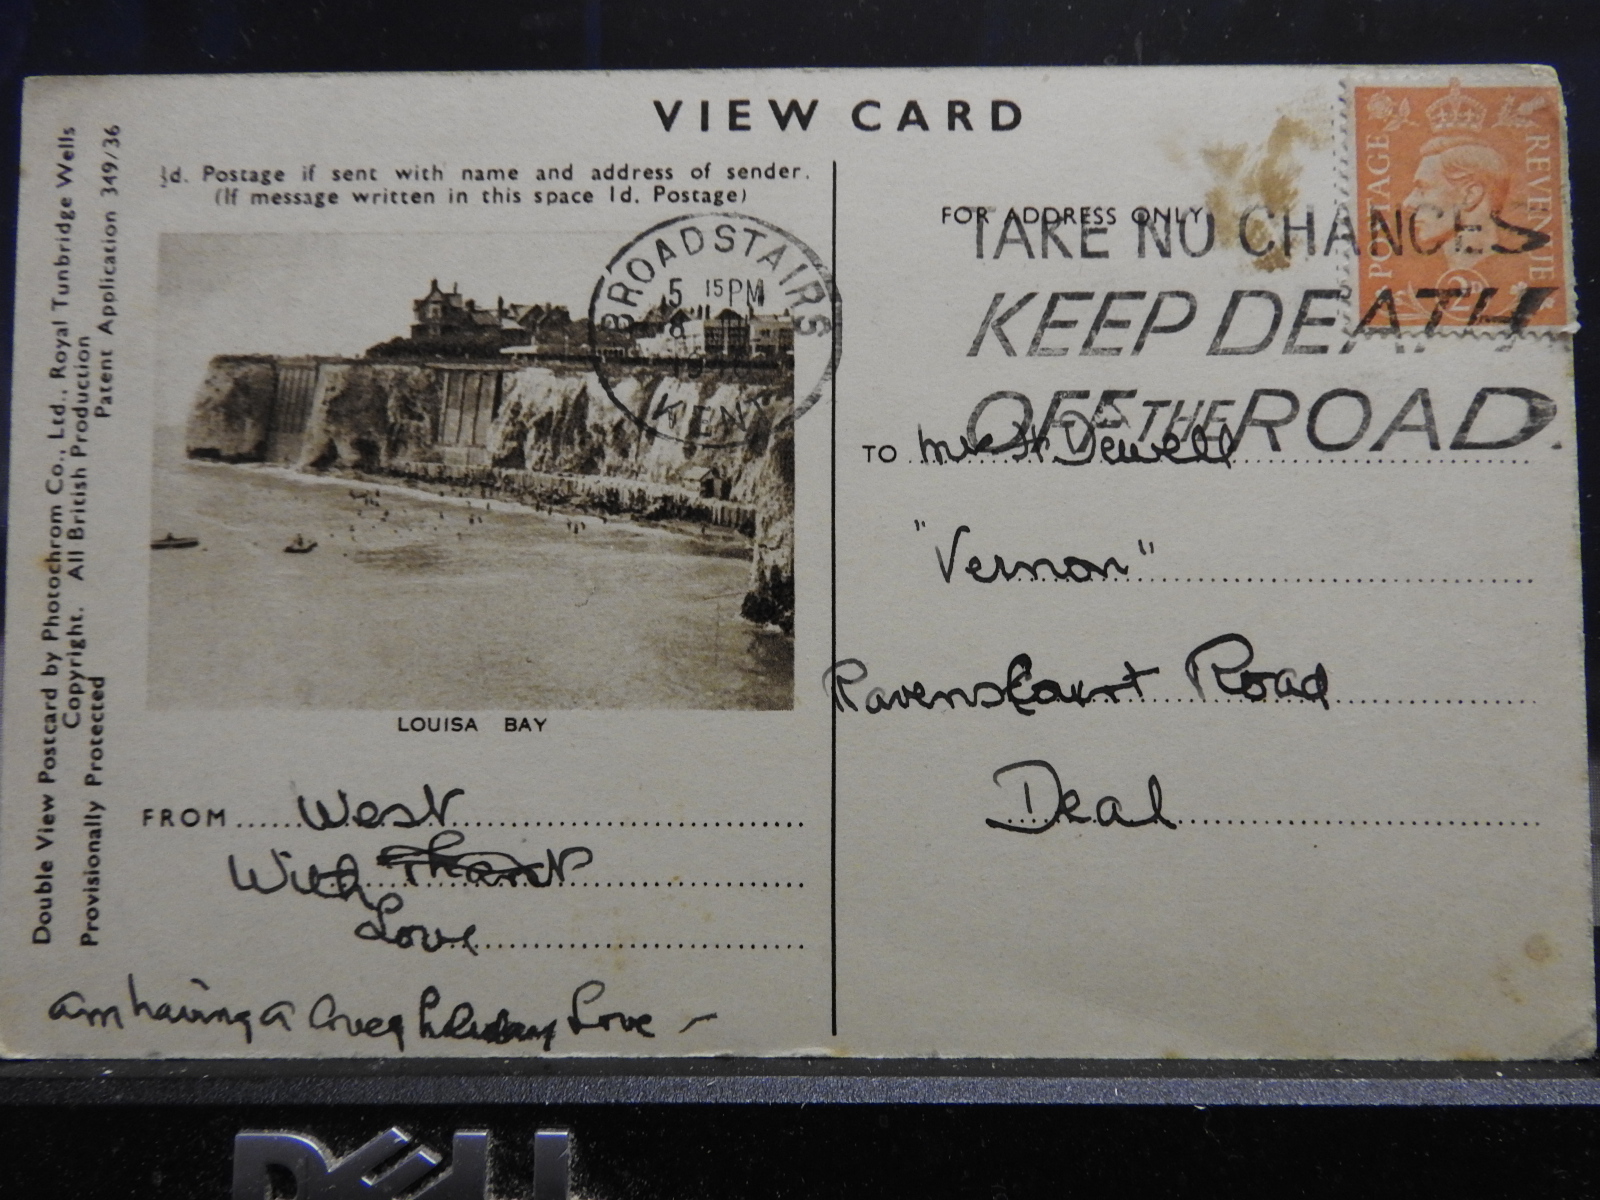 VIEW CARD
½d. Postage if sent with name and address of sender.
(If message written in this space 1d. Postage)
BROADSTAIRS
5 15 PM
8
19
KENT
LOUISA BAY
FROM West
With
Love
am having a lovely holiday Love -
Double View Postcard by Photochrom Co., Ltd., Royal Tunbridge Wells
Copyright. All British Production
Provisionally Protected Patent Application 349/36
FOR ADDRESS ONLY
TAKE NO CHANCES
KEEP DEATH
OFF THE ROAD.
POSTAGE
REVENUE
2D
TO Dewell
"Vernon"
Ravenscourt Road
Deal
DELL